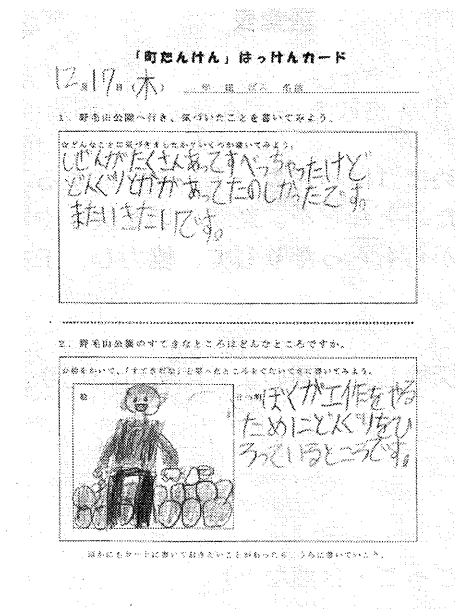 「町たんけん」はっけんカード
12月17日(木) 年 組 ばん 名前
1. 野毛山公園へ行き、気づいたことを書いてみよう。
☆どんなことに気づきましたか？いくつか書いてみよう。
しぜんがたくさんあってすべっちゃったけど
どんぐりとかがあってたのしかったです。
またいきたいです。
2. 野毛山公園のすてきなところはどんなところですか。
☆絵をかいて、「すてきだな」と思ったところをぐたいてきに書いてみよう。
絵
せつ明
ぼくが工作をやる
ためにどんぐりをひ
ろっているところです。
ほかにもカードに書いておきたいことがあったら、うらに書いていこう。